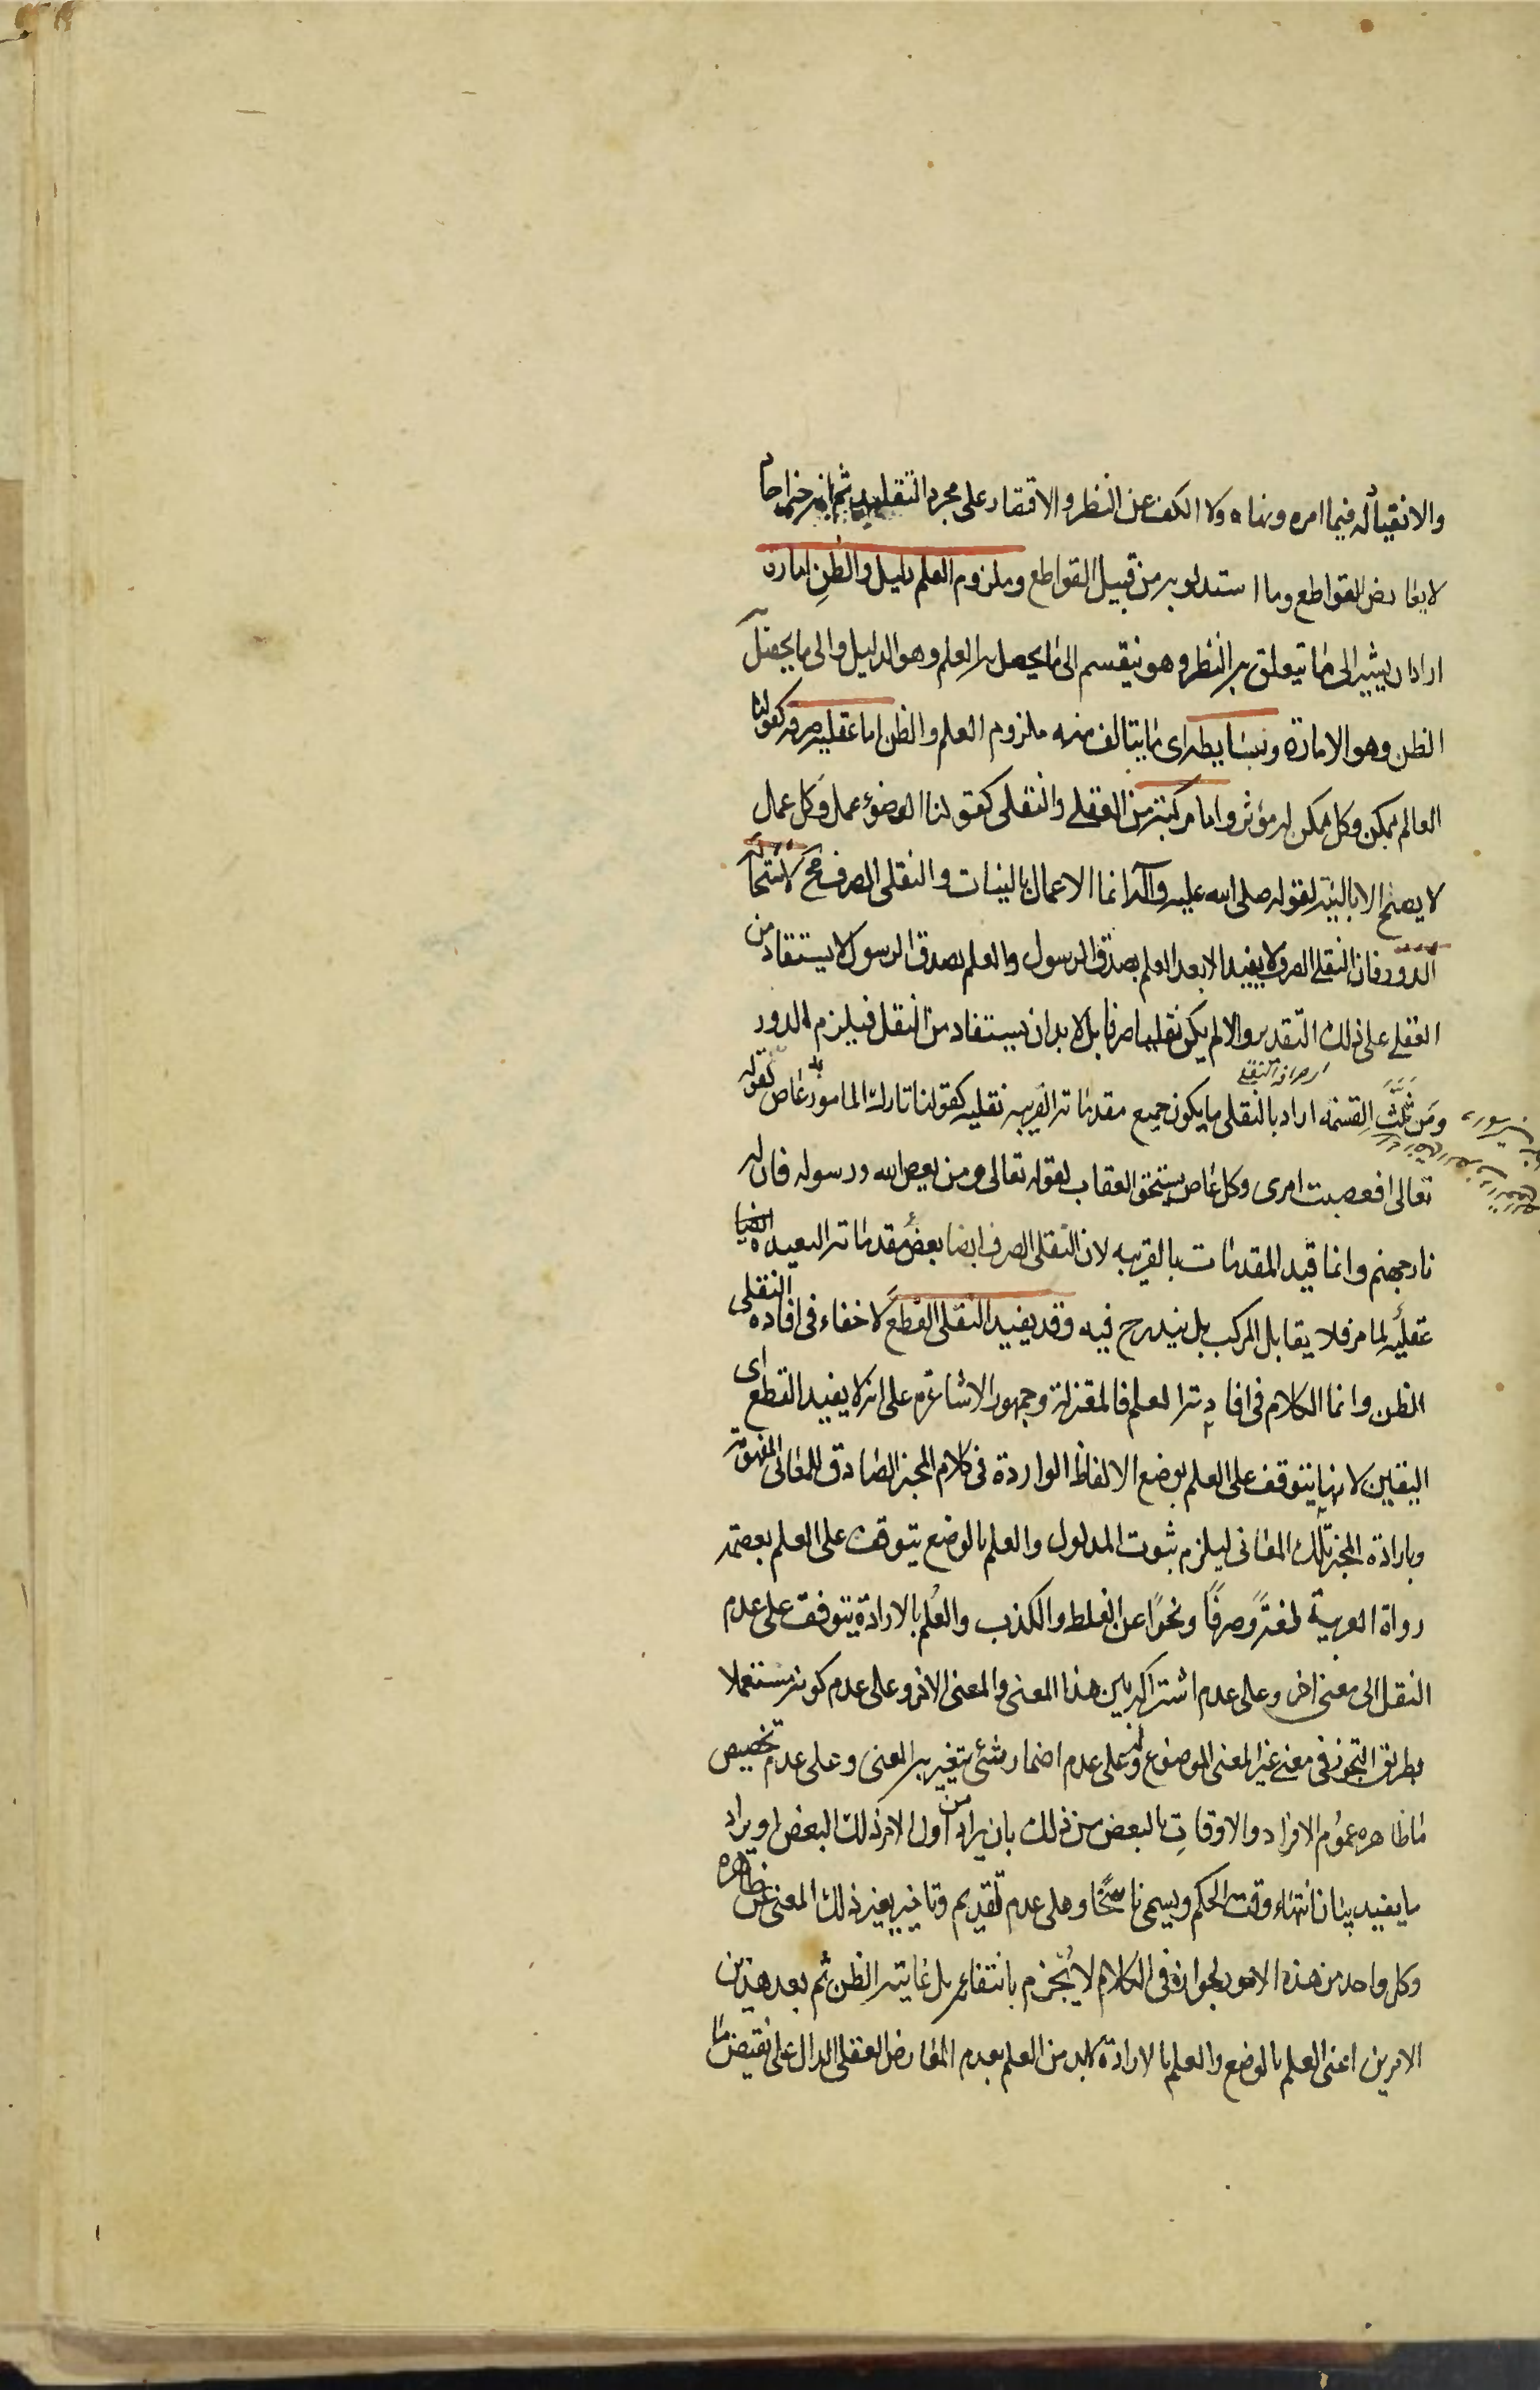 والانقياد له فيما امره ونهاه ولا الكف عن النظر والاقتصار على مجرد التقليد ثم انه خبر احاد
لا يعارض القواطع وما استدلوا به من قبيل القواطع وملزوم العلم دليل والظن امارة
اراد ان يشير الى ما يتعلق به النظر وهو ينقسم الى ما يحصل به العلم وهو الدليل والى ما يحصل به
الظن وهو الامارة وبسايطه اى ما يتالف منه ملزوم العلم والظن اما عقلية صرفه كقولنا
العالم ممكن وكل ممكن له مؤثر واما مركبة من العقلى والنقلى كقولنا الوضوء عمل وكل عمل
لا يصح الا بالنية لقوله صلى الله عليه وآله انما الاعمال بالنيات والنقلى الصرف مح لاستحالة
الدور فان النقلى الصرف لا يفيد الا بعد العلم بصدق الرسول والعلم بصدق الرسول لا يستفاد من
العقلى على ذلك التقدير والا لم يكن نقليا صرفا بل لا بد ان يستفاد من النقل فيلزم الدور
ومن ثلث القسمة اراد بالنقلى ما يكون جميع مقدماته القريبه نقليه كقولنا تارك المامور به عاص لقوله
تعالى افعصيت امرى وكل عاص يستحق العقاب لقوله تعالى ومن يعص الله ورسوله فان له
نار جهنم وانما قيد المقدمات بالقريبه لان النقلى الصرف ايضا بعض مقدماته البعيدة
عقليه لما مر فلا يقابل المركب بل يندرج فيه وقد يفيد النقلى القطع لا خفاء فى افادة النقلى
الظن وانما الكلام فى افادته العلم فالمعتزلة وجمهور الاشاعرة على انه لا يفيد القطع اى
اليقين لانها يتوقف على العلم بوضع الالفاظ الواردة فى كلام المخبر الصادق للمعانى المفهومة
وبارادة المخبر تلك المعانى ليلزم ثبوت المدلول والعلم بالوضع يتوقف على العلم بعصمة
رواة العربية لغة وصرفا ونحوا عن الغلط والكذب والعلم بالارادة يتوقف على عدم
النقل الى معنى اخر وعلى عدم اشتراكه بين هذا المعنى والمعنى الاخر وعلى عدم كونه مستعملا
بطريق التجوز فى معنى غير المعنى الموضوع له وعلى عدم اضمار شئ يتغير به المعنى وعلى عدم تخصيص
ما ظاهره عموم الافراد والاوقات بالبعض من ذلك بان يراد من اول الامر ذلك البعض او يراد
ما يفيد بيان انتهاء وقت الحكم ويسمى ناسخا وعلى عدم تقديم وتاخير يغير ذلك المعنى عن ظاهره
وكل واحد من هذه الامور لجوازه فى الكلام لا يجزم بانتفائه بل غايته الظن ثم بعد هذين
الامرين اعنى العلم بالوضع والعلم بالارادة لا بد من العلم بعدم المعارض العقلى الدال على نقيض ما